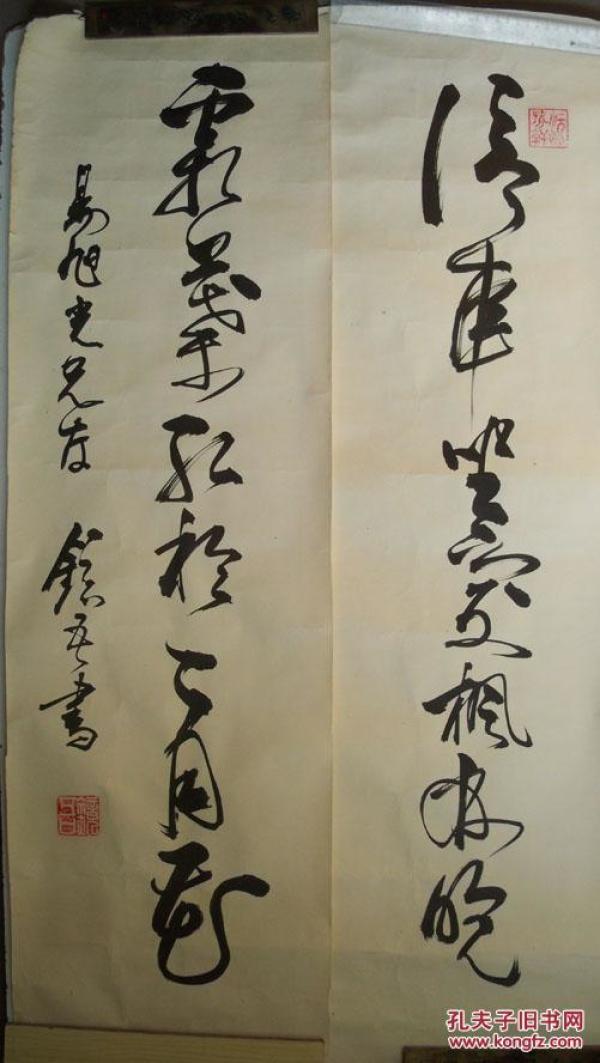 停车坐爱枫林晚
霜葉红於二月花
易旭光兄存
鎮吾書
孔夫子旧书网
www.kongfz.com